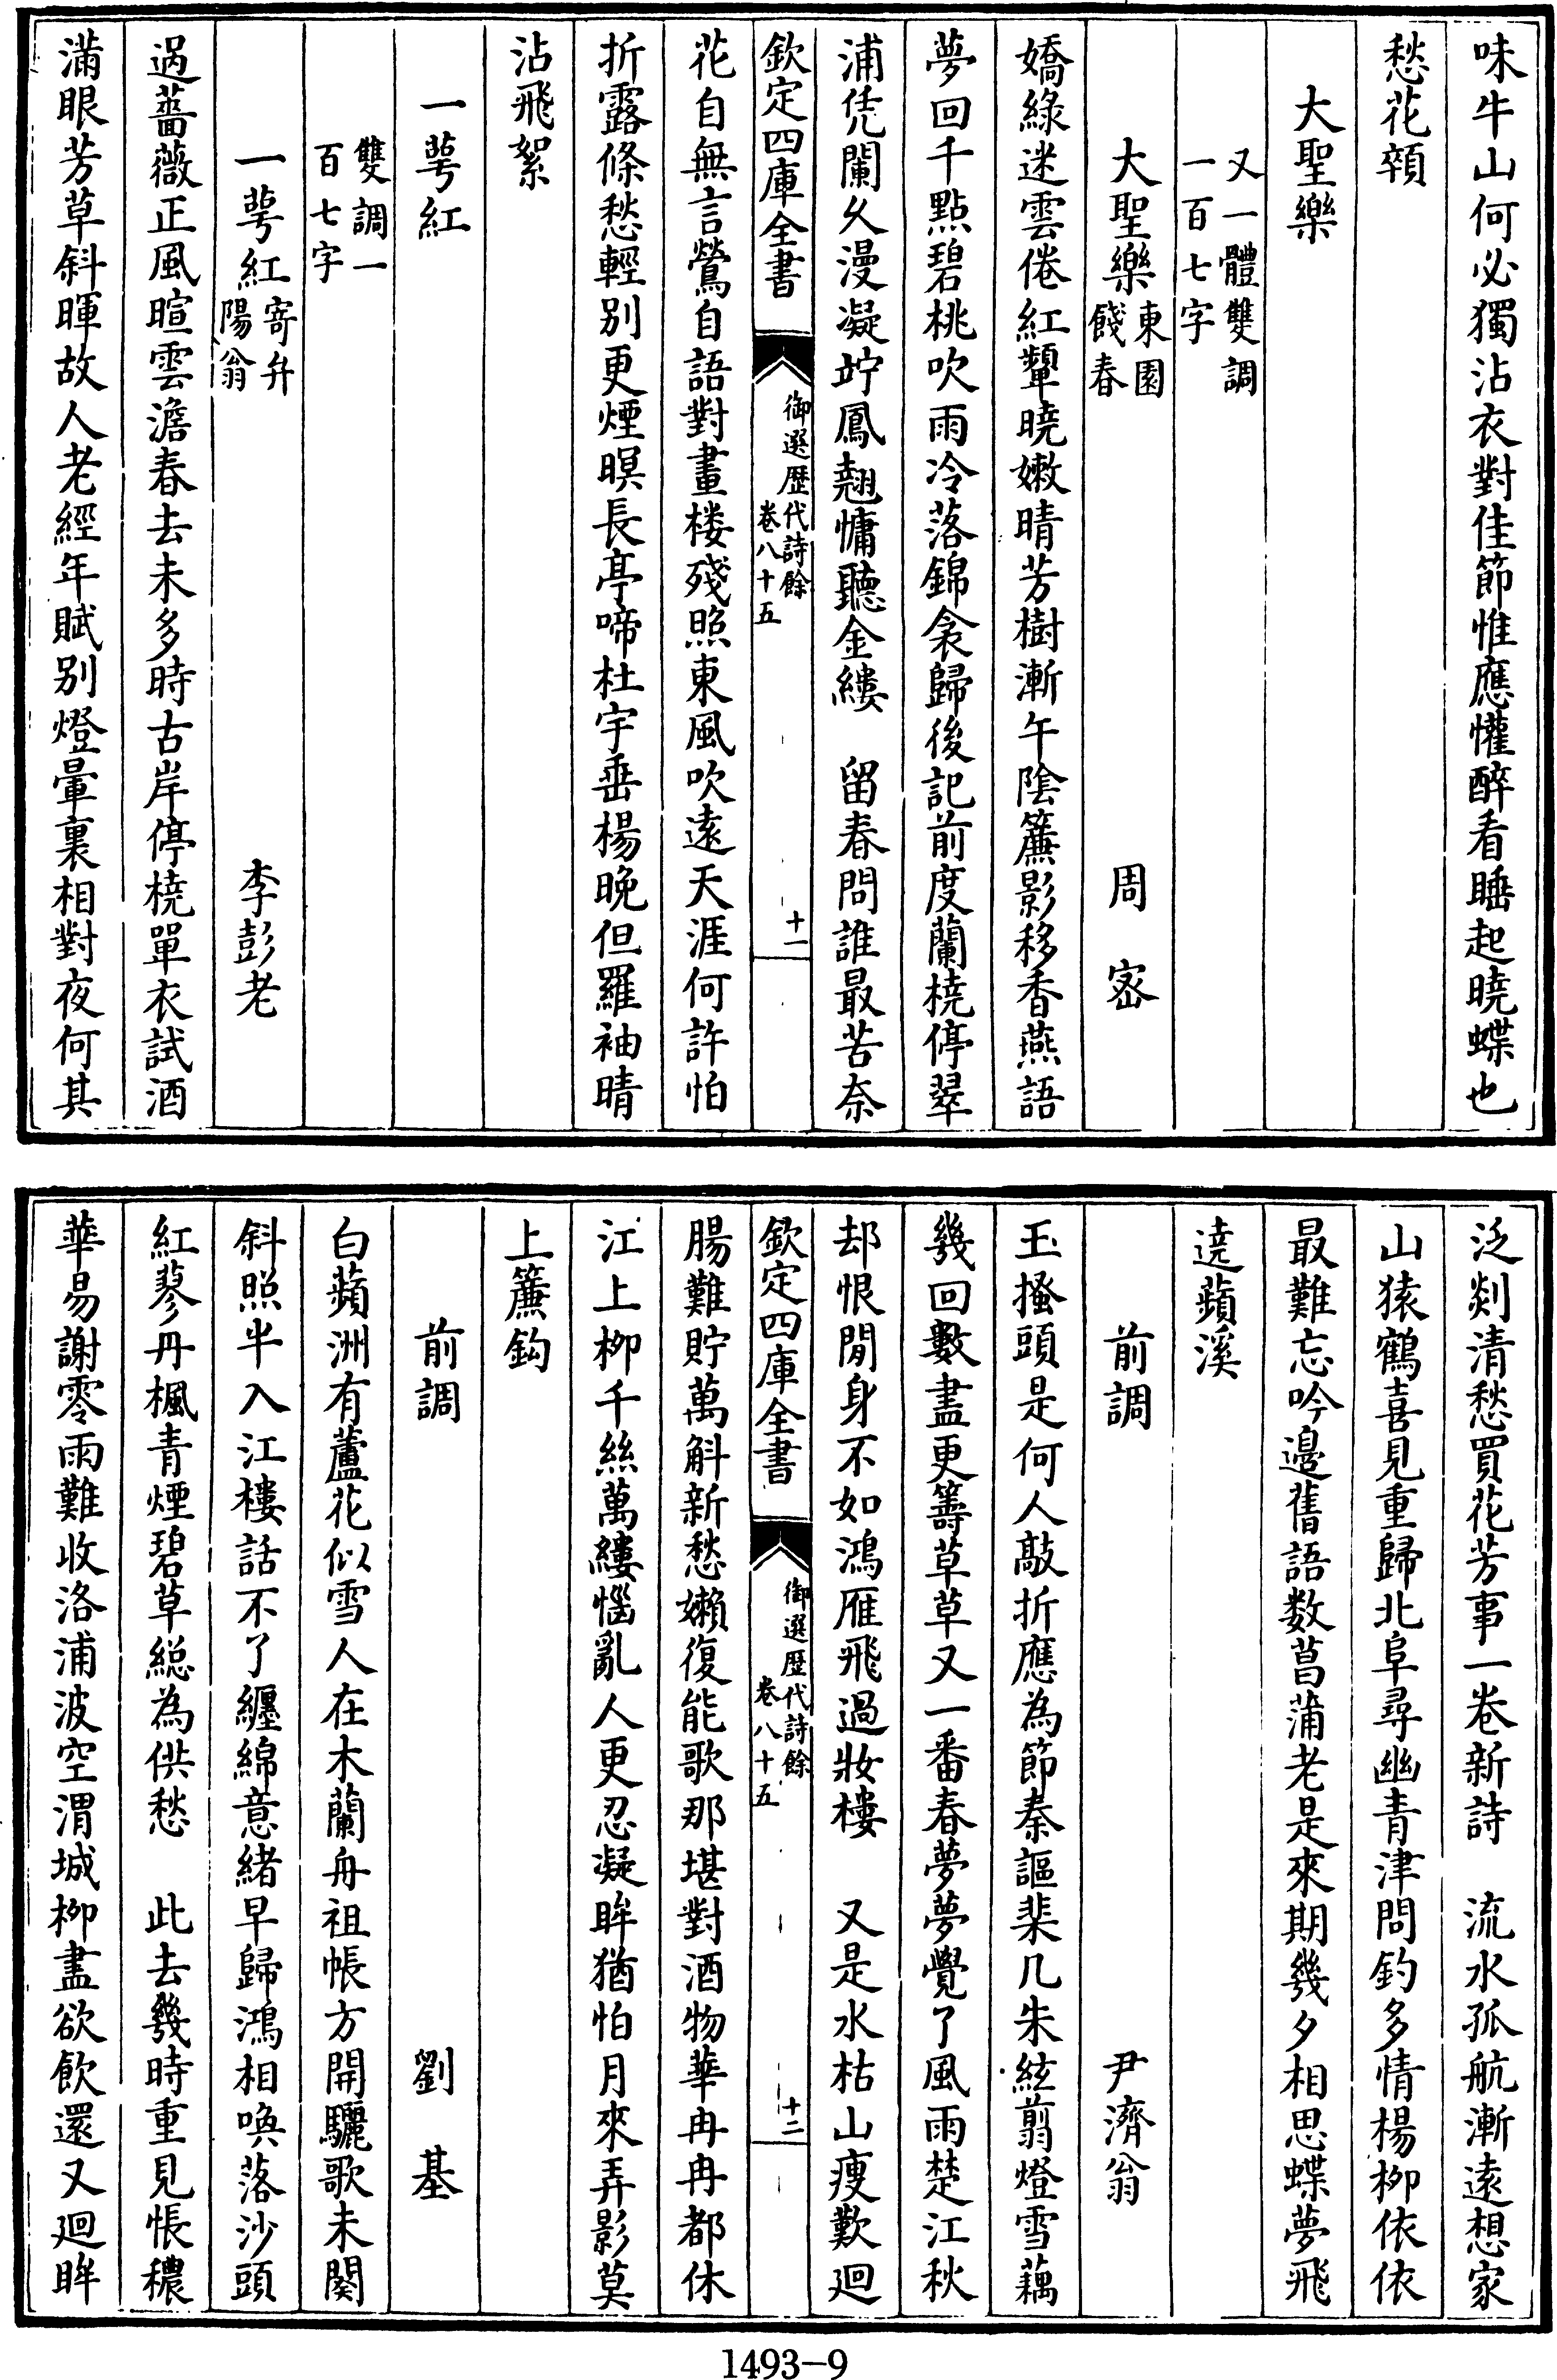 味牛山何必獨沾衣對佳節惟應懽醉看睡起曉蝶也
愁花顇
大聖樂
又一體雙調
一百七字
大聖樂東園
餞春
周密
嬌綠迷雲倦紅顰曉嫩晴芳樹漸午陰簾影移香燕語
夢回千點碧桃吹雨冷落錦衾歸後記前度蘭橈停翠
浦凭闌久漫凝竚鳳翹慵聽金縷　留春問誰最苦奈
欽定四庫全書
御選歴代詩餘
卷八十五
十一
花自無言鶯自語對畫楼殘照東風吹遠天涯何許怕
折露條愁輕别更煙暝長亭啼杜宇垂楊晚但羅袖晴
沾飛絮
一萼紅
雙調一
百七字
一萼紅寄弁
陽翁
李彭老
過薔薇正風暄雲澹春去未多時古岸停橈單衣試酒
滿眼芳草斜暉故人老經年賦别燈暈裏相對夜何其
泛剡清愁買花芳事一卷新詩　流水孤航漸遠想家
山猿鶴喜見重歸北阜尋幽青津問釣多情楊柳依依
最難忘吟邊舊語数菖蒲老是來期幾夕相思蝶夢飛
遶蘋溪
前調
尹濟翁
玉搔頭是何人敲折應為節秦謳棐几朱絃翦燈雪藕
幾回數盡更籌草草又一番春夢夢覺了風雨楚江秋
却恨閒身不如鴻雁飛過妝樓　又是水枯山瘦歎迴
欽定四庫全書
御選歴代詩餘
卷八十五
十二
腸難貯萬斛新愁嬾復能歌那堪對酒物華冉冉都休
江上柳千絲萬縷惱亂人更忍凝眸猶怕月來弄影莫
上簾鈎
前調
劉基
白蘋洲有蘆花似雪人在木蘭舟祖帳方開驪歌未闋
斜照半入江樓話不了纏綿意緒早歸鴻相喚落沙頭
紅蓼丹楓青煙碧草總為供愁　此去幾時重見悵穠
華易謝零雨難收洛浦波空渭城柳盡欲飲還又迴眸
1493-9